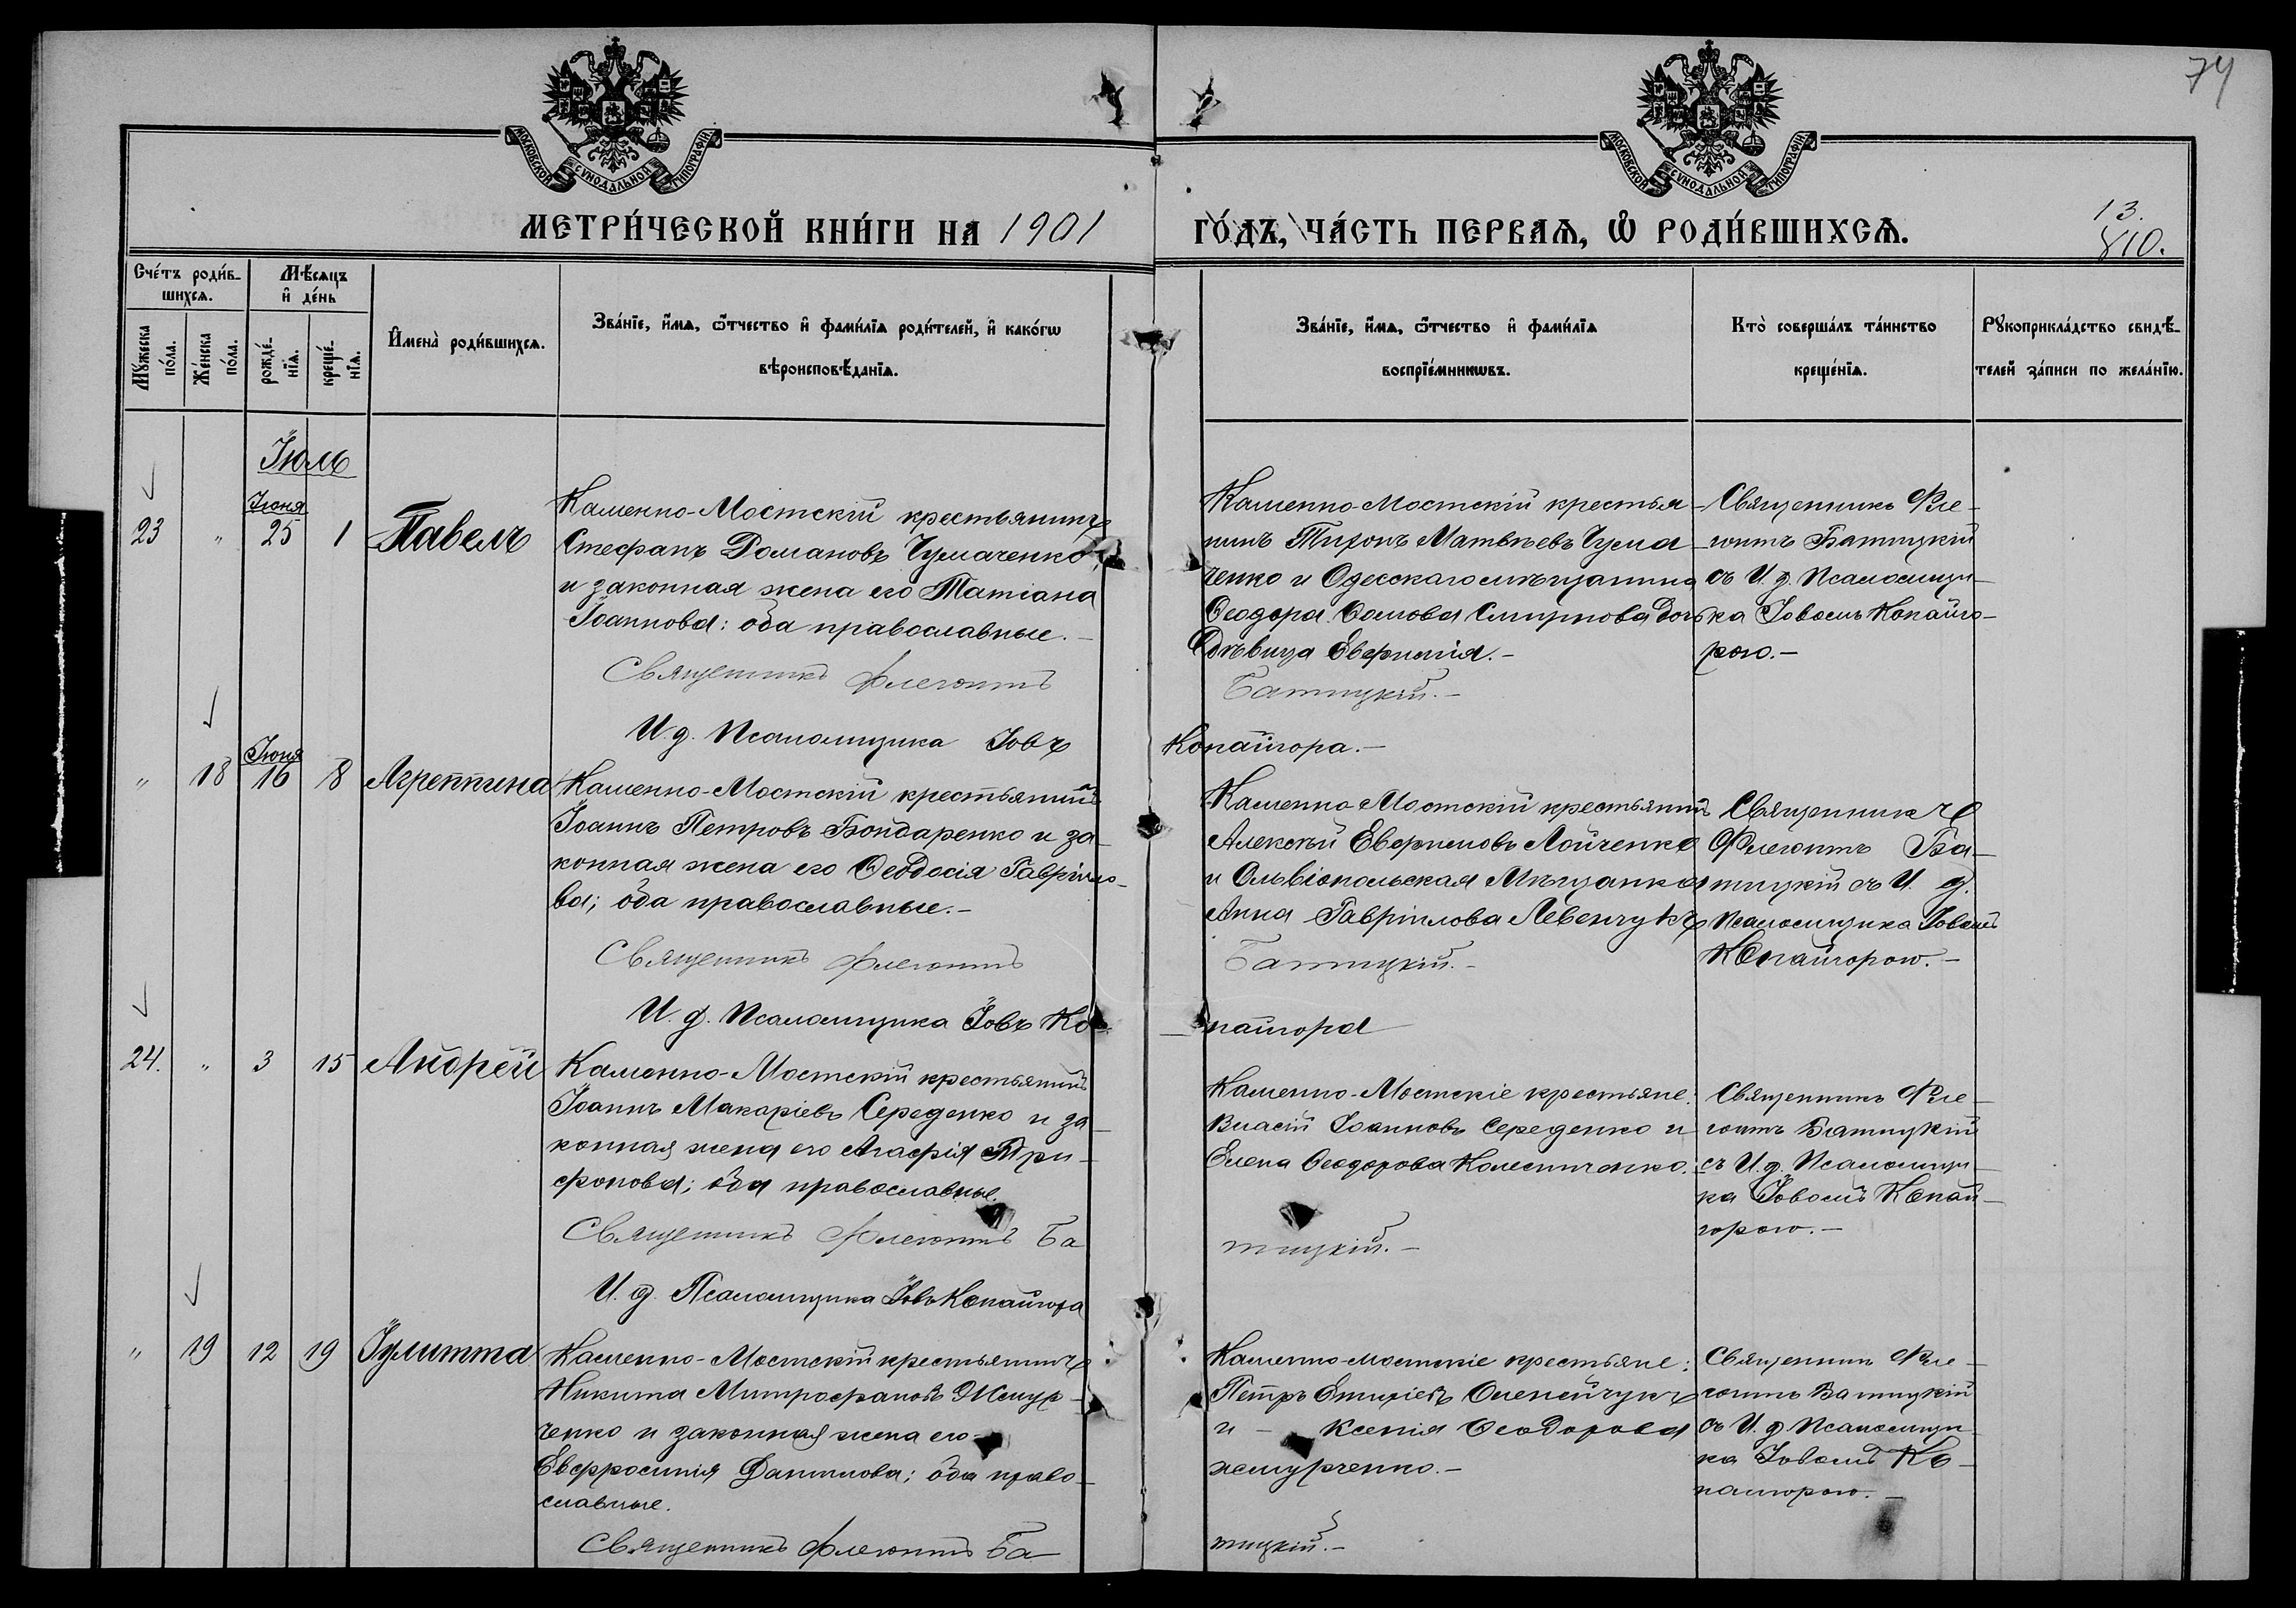 74
МОСКОВСКОЙ СѴНОДАЛЬНОЙ ТИПОГРАФІИ
МОСКОВСКОЙ СѴНОДАЛЬНОЙ ТИПОГРАФІИ
МЕТРИ́ЧЕСКОЙ КНИ́ГИ НА 1901
ГО́ДЪ, ЧА́СТЬ ПЕРВАѦ, Ѡ РОДИ́ВШИХСѦ.
13.
810.
Сче́тъ роди́в-
шихсѧ.
Мѣ́сяцъ
и҆ де́нь
Мꙋ́жеска
по́ла.
Же́нска
по́ла.
рожде́-
нїѧ.
креще́-
нїѧ.
И҆мена̀ роди́вшихсѧ.
Зва́нїе, и҆́мѧ, ѻ҆́тчество и҆ фами́лїѧ роди́телей, и҆ како́гѡ
вѣроисповѣ́данїѧ.
Зва́нїе, и҆́мѧ, ѻ҆́тчество и҆ фами́лїѧ
воспрїе́мникѡвъ.
Кто̀ соверша́лъ та́инство
креще́нїѧ.
Рꙋкоприкла́дство свидѣ́-
телей за́писи по жела́нїю.
Іюль
Іюня
23 " 25 1 Павелъ
Каменно-Мостскій крестьянинъ
Стефанъ Домановъ Чумаченко,
и законная жена его Татіана
Іоаннова: оба православные.-
Священникъ Флегонтъ
И. д. Псаломщика Іовъ
Каменно-Мостскій крестья-
нинъ Тихонъ Матвѣевъ Чума-
ченко и Одесскаго мѣщанина
Ѳеодора Смирнова дочь
дѣвица Евфимія.-
Батицкій.-
Копайгора.-
Священникъ Фле-
гонтъ Батицкій
съ И. д. Псаломщи-
ка Іовомъ Копайго-
рою.-
Іюня
" 18 16 8 Агреппина
Каменно-Мостскій крестьянинъ
Іоаннъ Петровъ Бондаренко и за-
конная жена его Ѳеодосія Гавріило-
ва; оба православные.-
Священникъ Флегонтъ
И. д. Псаломщика Іовъ Ко-
Каменно-Мостскій крестьянинъ
Алексѣй Евфимовъ Лойченко
и Ольвіопольская Мѣщанка
Анна Гавріилова Левенчукъ
Батицкій.-
пайгора
Священникъ
Флегонтъ Ба-
тицкій съ И. д.
Псаломщика Іовомъ
Копайгорою.-
24. " 3 15 Андрей
Каменно-Мостскій крестьянинъ
Іоаннъ Макаріевъ Середенко и за-
конная жена его Агафія Три-
фонова; оба православные.
Священникъ Флегонтъ Ба
И. д. Псаломщика Іовъ Копайгора
Каменно-Мостскіе крестьяне:
Власій Іоанновъ Середенко и
Елена Ѳеодорова Колесниченко.
тицкій.-
Священникъ Фле-
гонтъ Батицкій
съ И. д. Псаломщи-
ка Іовомъ Копай-
горою.-
" 19 12 19 Іулитта
Каменно-Мостскій крестьянинъ
Никита Митрофановъ Жмур-
ченко и законная жена его
Евфросинія Даніилова; оба право-
славные.
Священникъ Флегонтъ Ба
Каменно-Мостскіе крестьяне:
Петръ Олепейчукъ
и - Ксенія Ѳеодорова
Жмурченко.-
тицкій.-
Священникъ Фле-
гонтъ Батицкій
съ И. д. Псаломщи-
ка Іовомъ Ко-
пайгорою.-